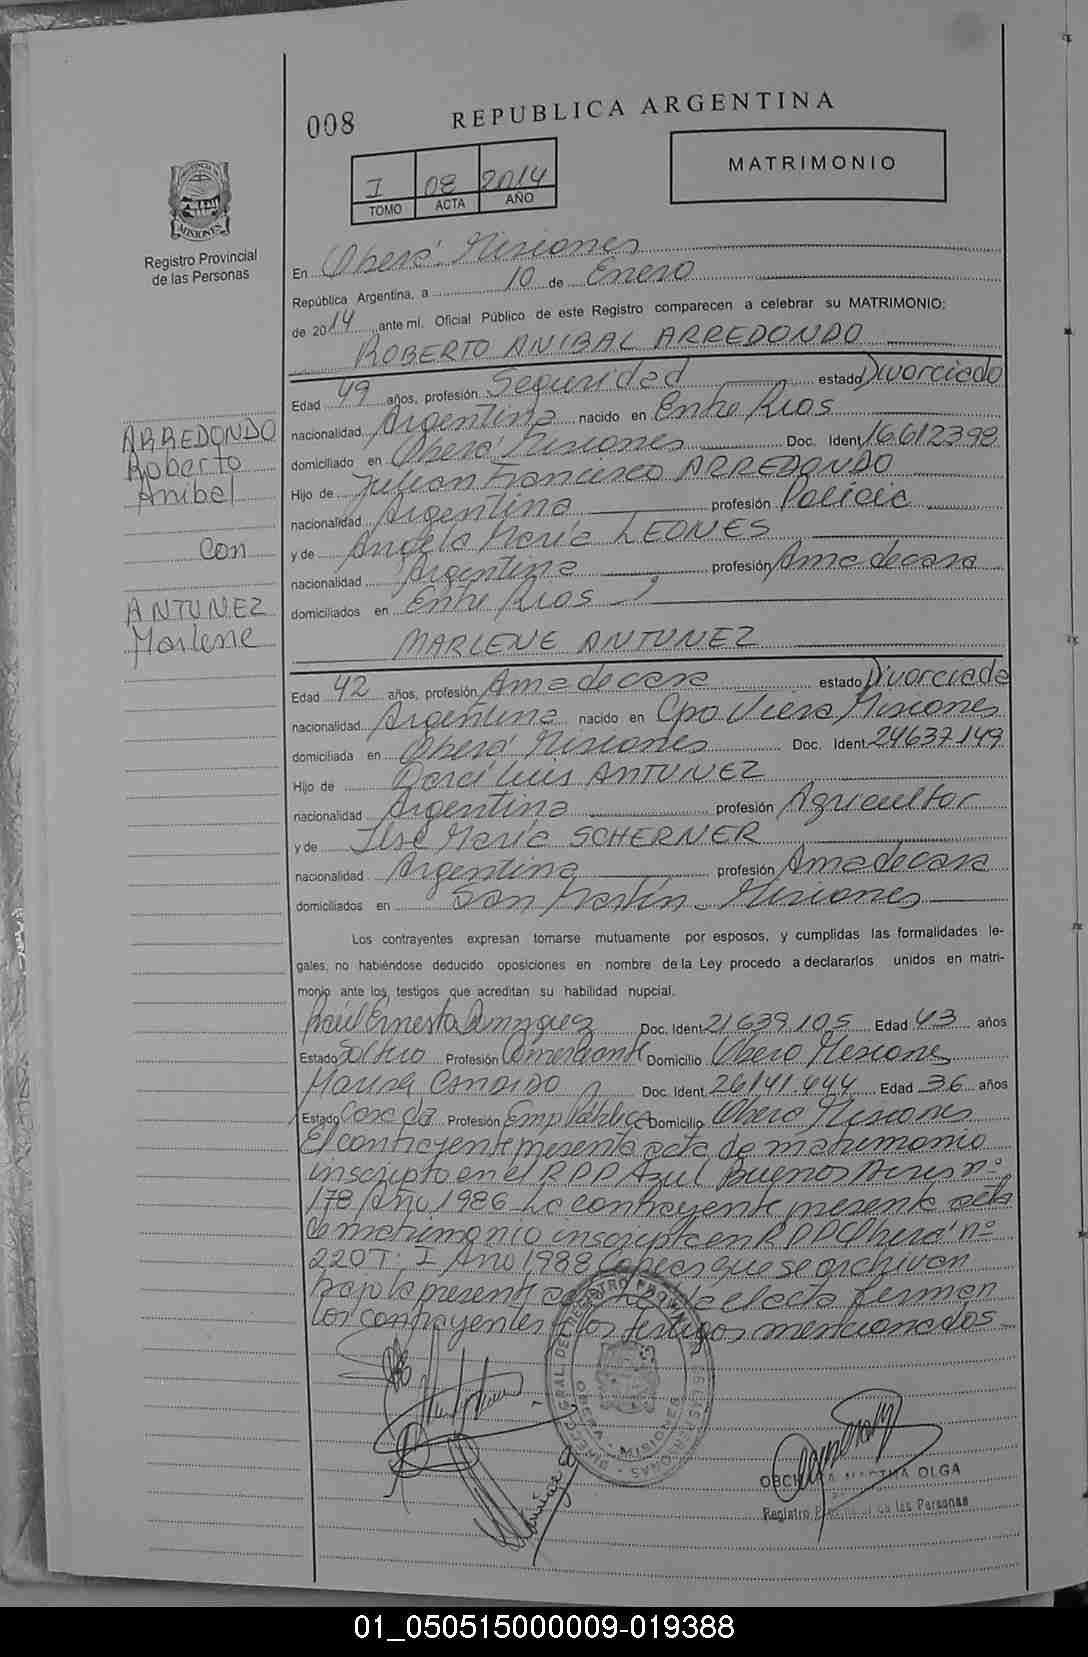 008 REPUBLICA ARGENTINA
I 08 2014
TOMO ACTA AÑO
MATRIMONIO
MISIONES
Registro Provincial
de las Personas
En Oberá Misiones
República Argentina, a 10 de Enero
de 2014 ante mí, Oficial Público de este Registro comparecen a celebrar su MATRIMONIO:
ROBERTO ANIBAL ARREDONDO
Edad 49 años, profesión Seguridad estado Divorciado
nacionalidad Argentina nacido en Entre Rios
domiciliado en Oberá Misiones Doc. Ident 16612398
Hijo de Julian Francisco ARREDONDO
nacionalidad Argentina profesión Policia
y de Angela María LEONES
nacionalidad Argentina profesión Ama de casa
domiciliados en Entre Rios
ARREDONDO
Roberto
Anibal
con
ANTUNEZ
Marlene
MARLENE ANTUNEZ
Edad 42 años, profesión Ama de casa estado Divorciada
nacionalidad Argentina nacido en Cpo Viera Misiones
domiciliada en Oberá Misiones Doc. Ident 24637149
Hijo de Luis ANTUNEZ
nacionalidad Argentina profesión Agricultor
y de Ilse María SCHERNER
nacionalidad Argentina profesión Ama de casa
domiciliados en San Martín - Misiones
Los contrayentes expresan tomarse mutuamente por esposos, y cumplidas las formalidades le-
gales, no habiéndose deducido oposiciones en nombre de la Ley procedo a declararlos unidos en matri-
monio ante los testigos que acreditan su habilidad nupcial.
Raúl Ernesto Dominguez Doc. Ident 21639105 Edad 43 años
Estado Soltero Profesión Comerciante Domicilio Oberá Misiones
Marisa CANDIDO Doc. Ident. 26141.444 Edad 36 años
Estado Casada Profesión Emp Pública Domicilio Oberá Misiones
El contrayente presenta acta de matrimonio
inscripto en el RPP Azul Buenos Aires nº
178 Año 1986 La contrayente presenta acta
de matrimonio inscripta en RPP Oberá nº
220 T: I Año 1988 Copias que se archivan
bajo la presente el acta firman
los contrayentes y los testigos mencionados
OLGA
Registro de las Personas
01_050515000009-019388